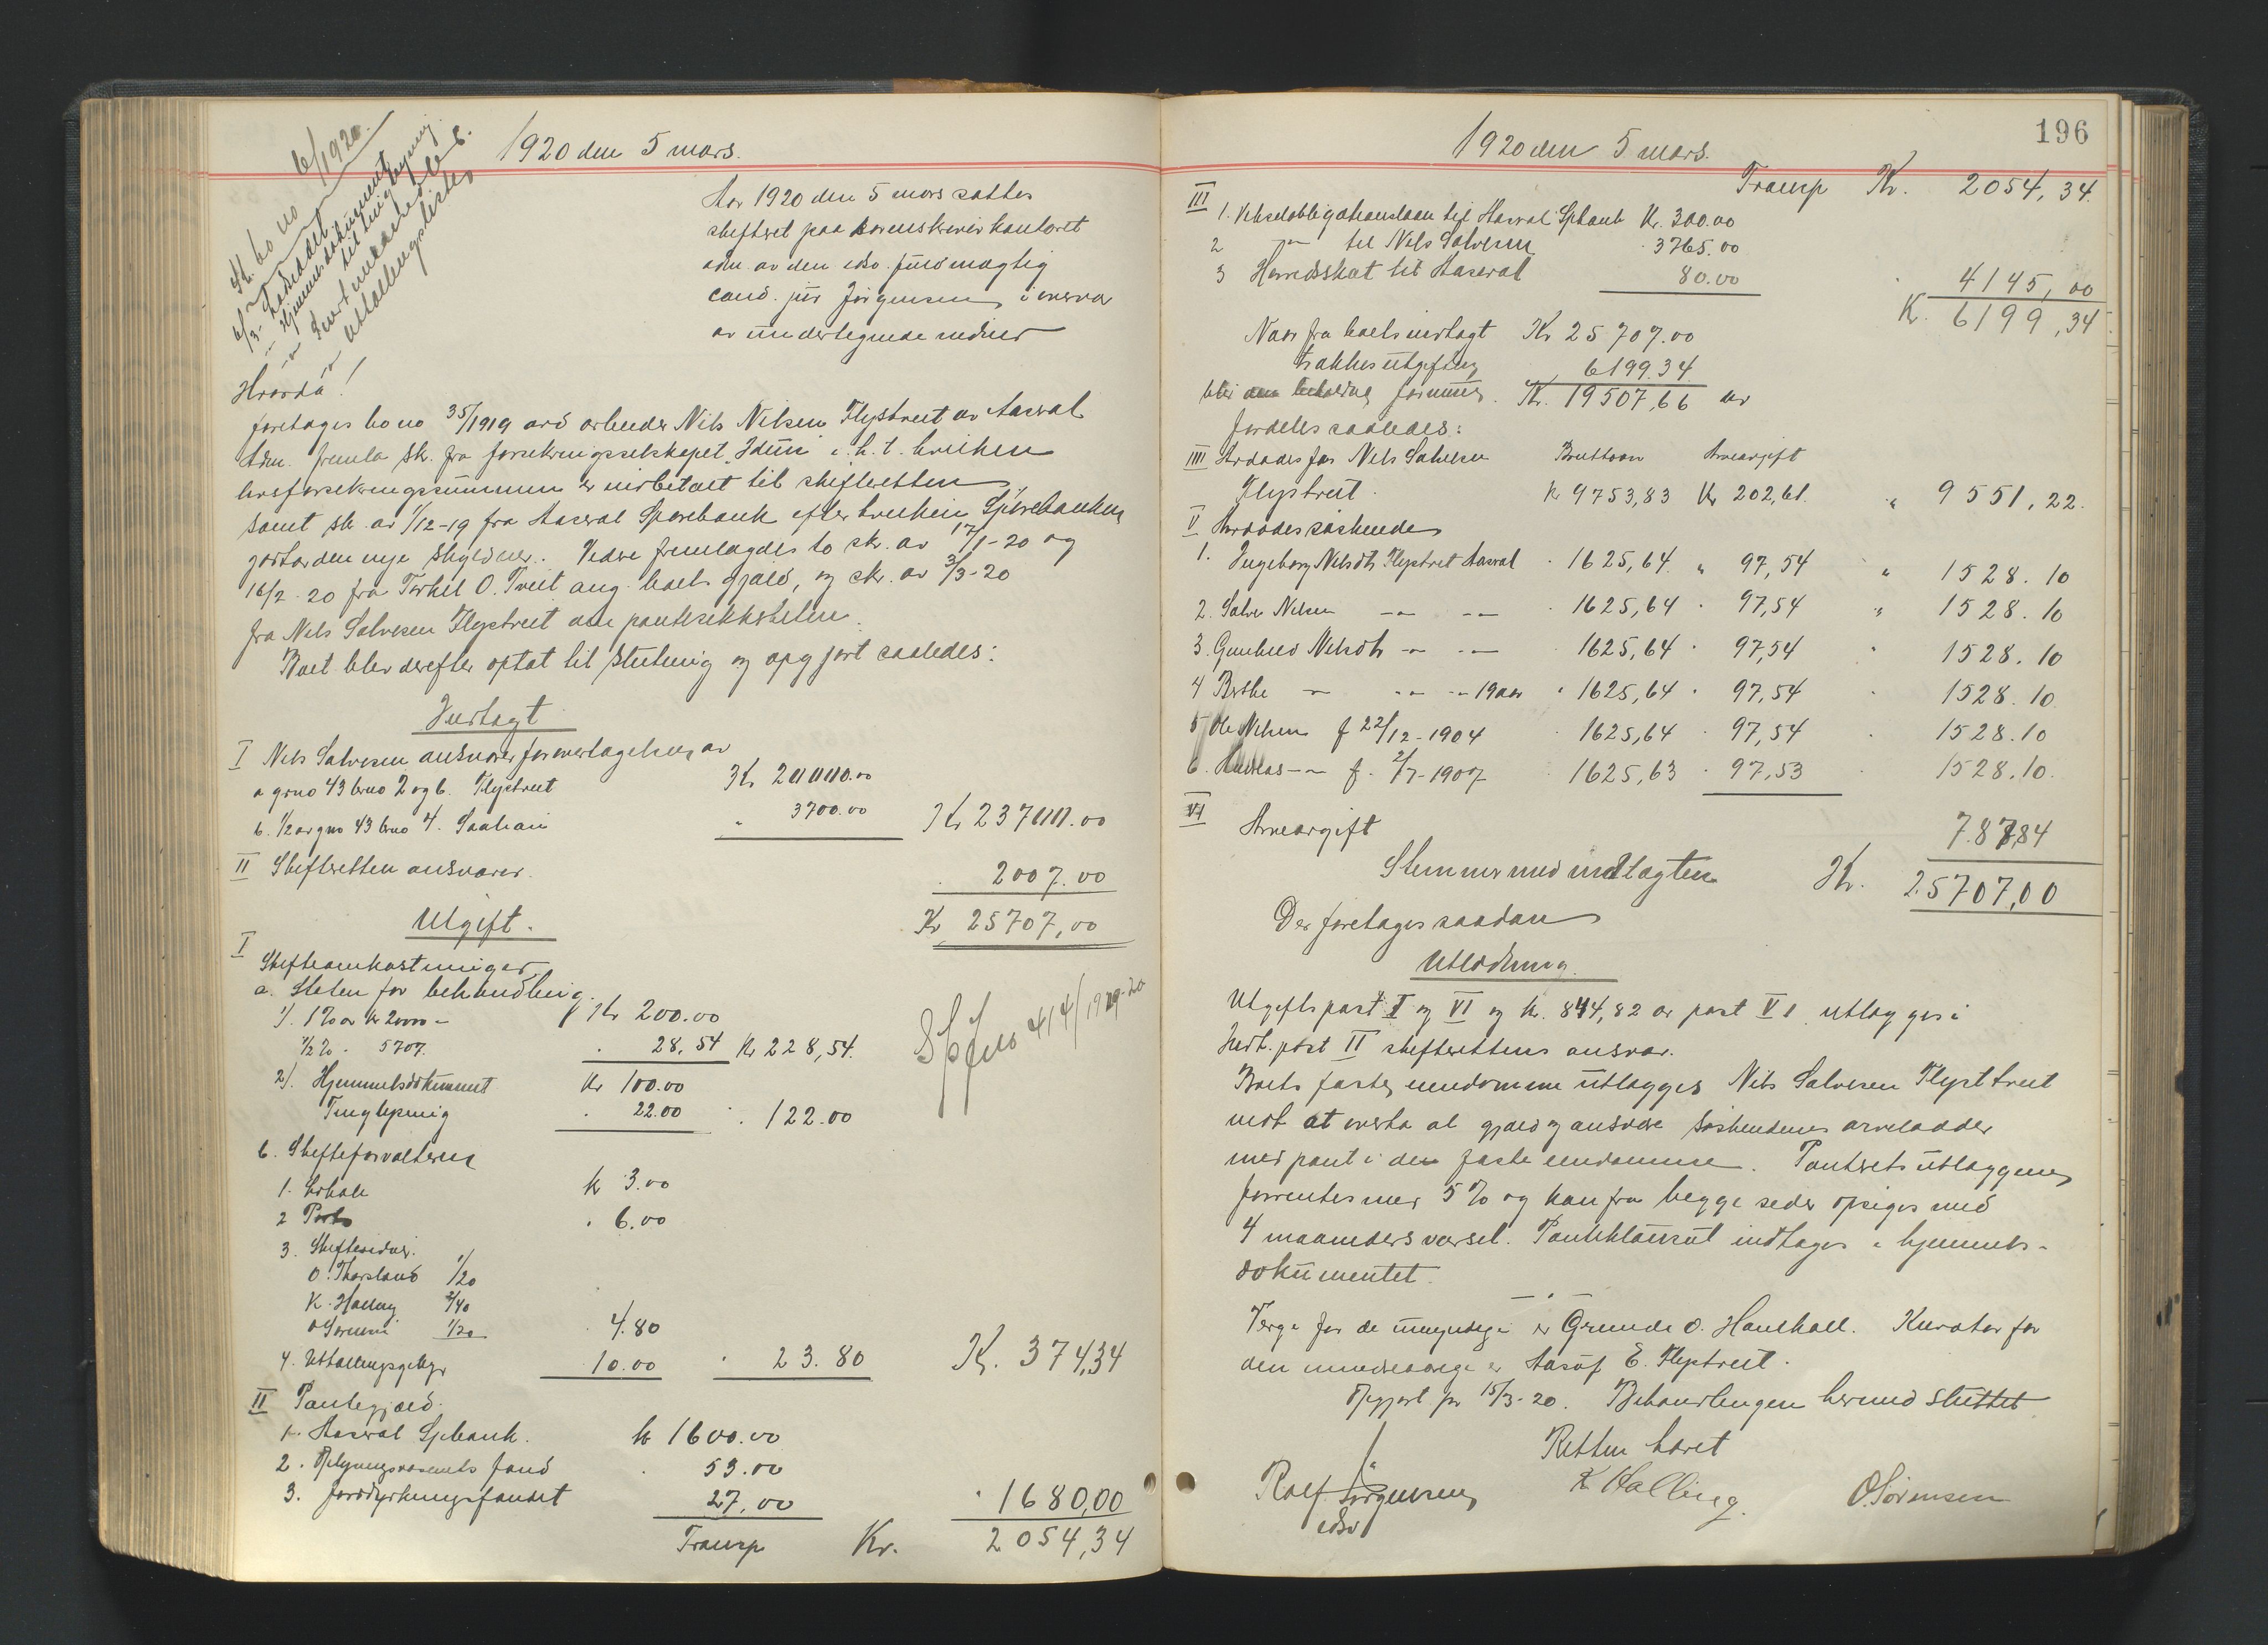 1920 den 5 mars.
bo no 6/1920.
Aar 1920 den 5 mars sattes
skifteret paa sorenskriverkontoret
adm. av den edsv. fuldmægtig
cand. jur Jørgensen i overvær
av undertegnede vidner
Hvorda!
foretages bo no 35/1919 avd arbeider Nils Nilsen Flystveit av Aaseral
Adm. fremla skr. fra forsikringsselskapet Idun i h. t. hvilken
livsforsikringssummen er indbetalt til skifteretten
samt skr. av 1/12-19 fra Aaseral Sparebank efter hvilken Sparebanken
Videre fremlagdes to skr. av 17/1-20 og
16/2-20 fra Terkel O. Tveit ang. boets gjæld, og skr. av 3/3-20
fra Nils Salvesen Flystveit om pantesikkerheten.
Boet blev derefter optat til slutning og opgjort saaledes:
Indtægt
I Nils Salvesen ansvarer for overtagelsen av
a grno 43 brno 2 og 6. Flystveit Kr 20000.00
b. 1/2 av gno 43 brno 4. " 3700.00 Kr 23700.00
II Skifteretten ansvarer. 2007.00
Kr 25707,00
Utgift.
I
Skifteomkostninger
a. Staten for behandling.
1/. 1% av kr 20000 - Kr 200.00
1/2% . 5707. . 28,54 Kr 228,54.
2/. Hjemmelsdokument Kr 100.00
Tinglysning . 22.00 . 122.00
414/1919-20
b. Skifteforvalteren
1. Lokale kr 3.00
2 Porto . 6.00
3. Skiftevidner.
O. Thorsland 1/20
K. Halling 2/40
O Sørensen 1/20 . 4.80
4. Utlodningsgebyr 10.00 . 23.80 Kr. 374,34
II Pantegjæld.
1. Aaseral Spbank. kr 1600.00
2. Oplysningsvæsenets fond . 53.00
3. Jorddyrkningsfondet 27,00 . 1680,00
Transp Kr. 2054,34
196
1920 den 5 mars.
Transp Kr. 2054,34.
III
1. Vekselobligationslaan til Aaseral Spbank Kr. 300.00
2 " til Nils Salvesen . 3765.00
3 Herredsskat til Aaseral 80.00 . 4145,00
K. 6199,34
Naar fra boets indtægt Kr 25707.00
trækkes utgiften 6199.34
blir den beholdne formue. Kr. 19507,66 der
fordeles saaledes:
IIII Avdødes far Nils Salvesen Bruttoarv Arveavgift
Flystveit. kr 9753,83 Kr 202,61. " 9551,22.
V Avdødes søskende
1. Ingeborg Nilsdtr Flystveit Aaseral . 1625,64. " 97,54 " 1528.10
2. Salve Nilsen -"- -"- . 1625,64 . 97,54 " 1528.10
3. Gunhild Nilsdtr -"- -"- . 1625,64 . 97,54 . 1528.10
4 Berthe -"- -"- -"- 19 aar . 1625,64 . 97,54 . 1528.10
5 Ole Nilsen f 22/12-1904 . 1625,64 . 97,54 . 1528.10
6. Andreas -"- f. 2/7-1907 . 1625,63 . 97,53 . 1528,10.
VI Arveavgift 787,84
Stemmer med indtægten Kr. 25707,00
Der foretages saadan
Utlodning.
Utgiftspost I og VI og kr. 844,82 av post VI utlægges i
Indt. post II skifterettens ansvar.
Boets faste eiendomme utlægges Nils Salvesen Flystveit
mot at overta al gjæld og ansvare søskendenes arvelodder
med pant i den faste eiendomme. Panteretsutlæggene
forrentes med 5% og kan fra begge sider opsiges med
4 maaneders varsel. Panteklausul indtages i hjemmels-
dokumentet.
Verge for de umyndige er Grunde O. Kurator for
den mindreaarige er Aasulf E. Flystveit.
Opgjort pr 15/3-20. Behandlingen hermed sluttet
Retten hævet
Rolf Jørgensen K Halling. O. Sørensen
edsv